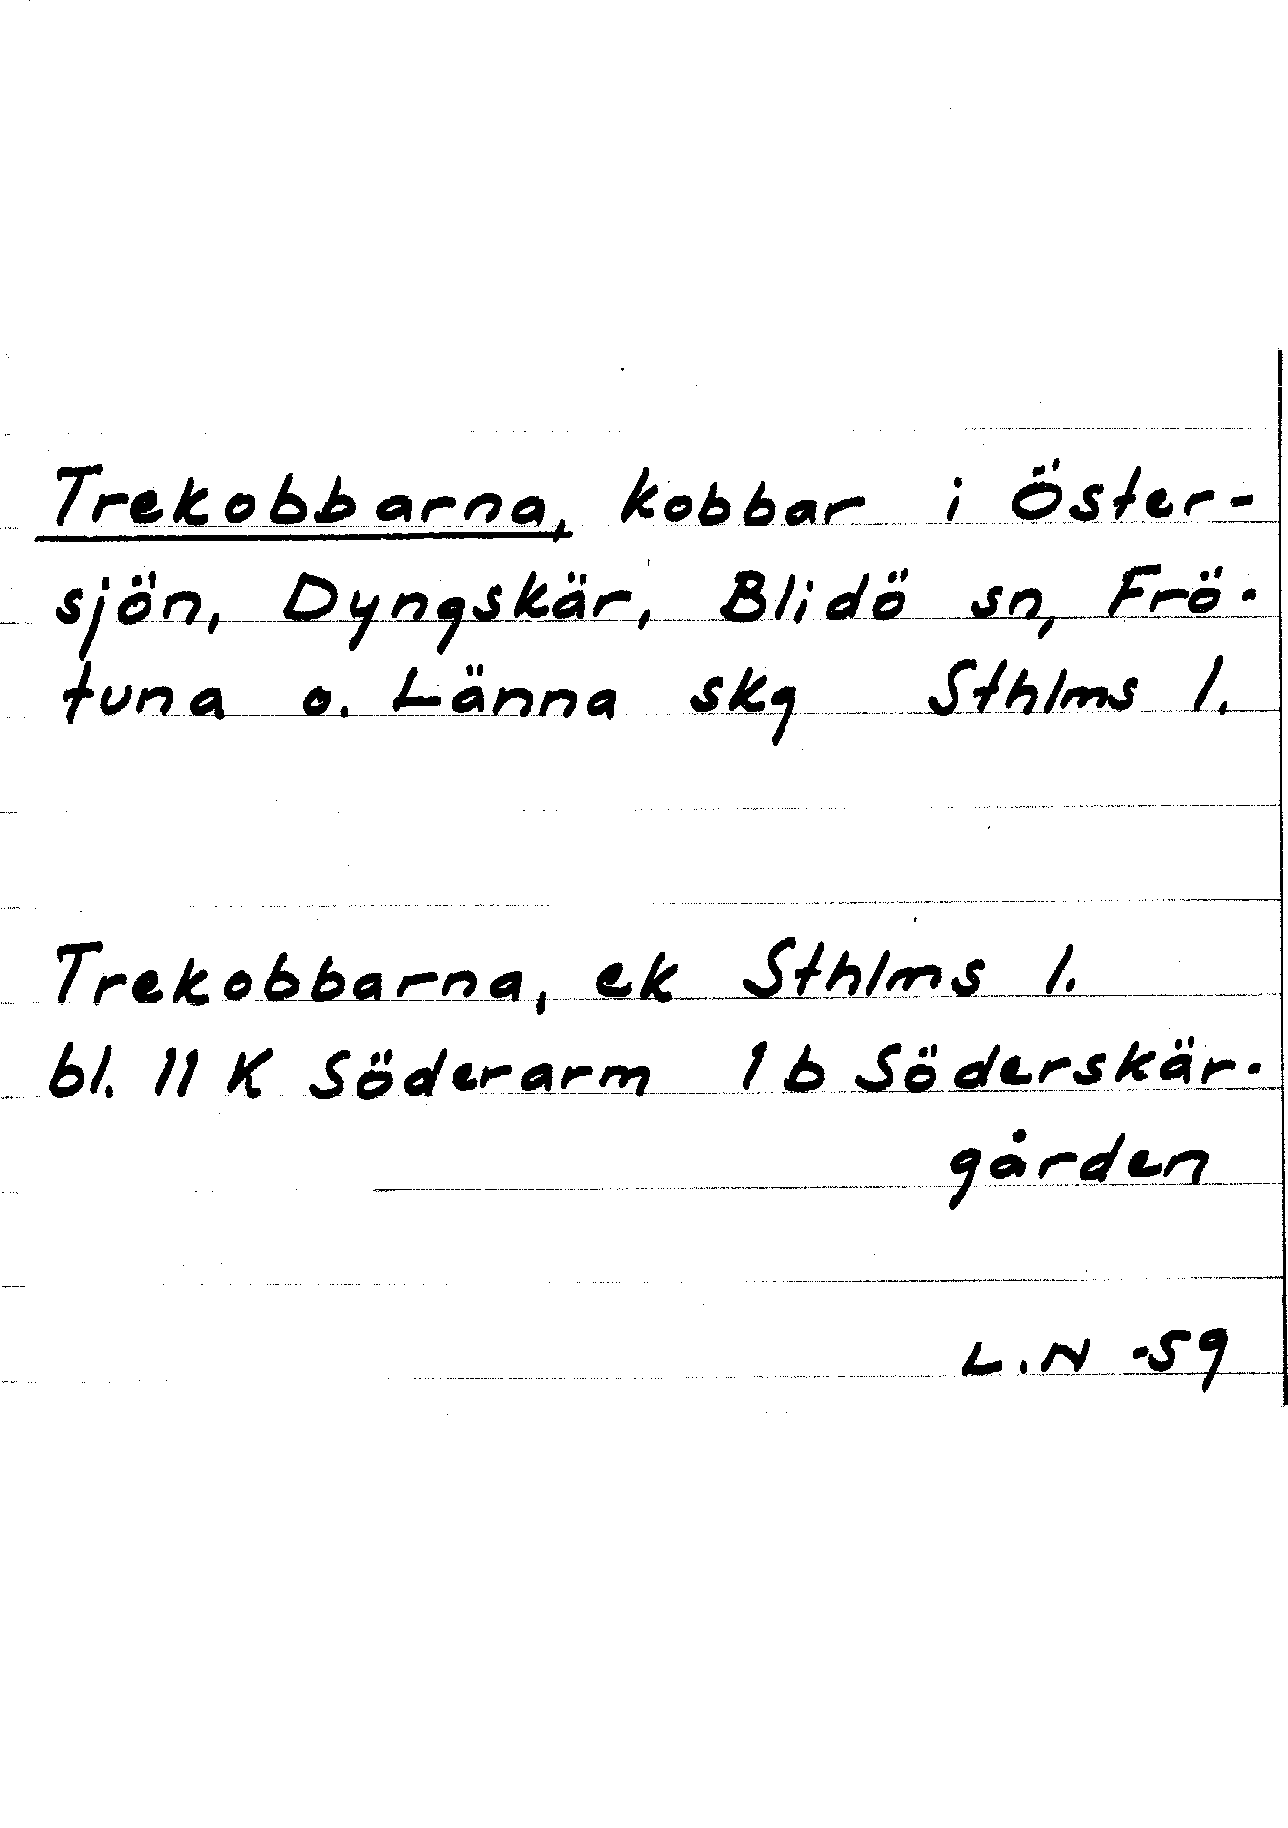 Trekobbarna, kobbar i Öster-
sjön, Dyngskär, Blidö sn, Frö-
tuna o. Länna skg Sthlms l.
Trekobbarna, ek Sthlms l.
bl. 11 K Söderarm 1 b Söderskär-
gården
L.N -59